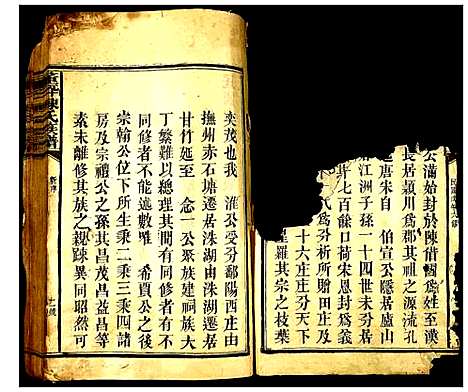 公滿始封於陳借國爲姓至漢
長居穎川爲郡其祖之源流孔
唐宗自 伯宣公隱居廬山
江洲子孫一十四世未分居
七百餘口荷宋恩封爲義
氏爲析分其田庄
十六庄庄分天
羅其宗之枝葉
奕茂也我 淮公受分鄱陽西庄由
撫州赤石塘遷居洙湖由洙湖遷居
甘竹延至 念一公聚族建祠族大
丁繁難以總理其間有同修者有不
同修者不能遠數 希賈公之後
崇翰公位下所生乘二乘三乘四等
房及宗禮公之孫其昌茂昌益昌等
素未離修其族之親踈異同昭然可
陳氏族譜